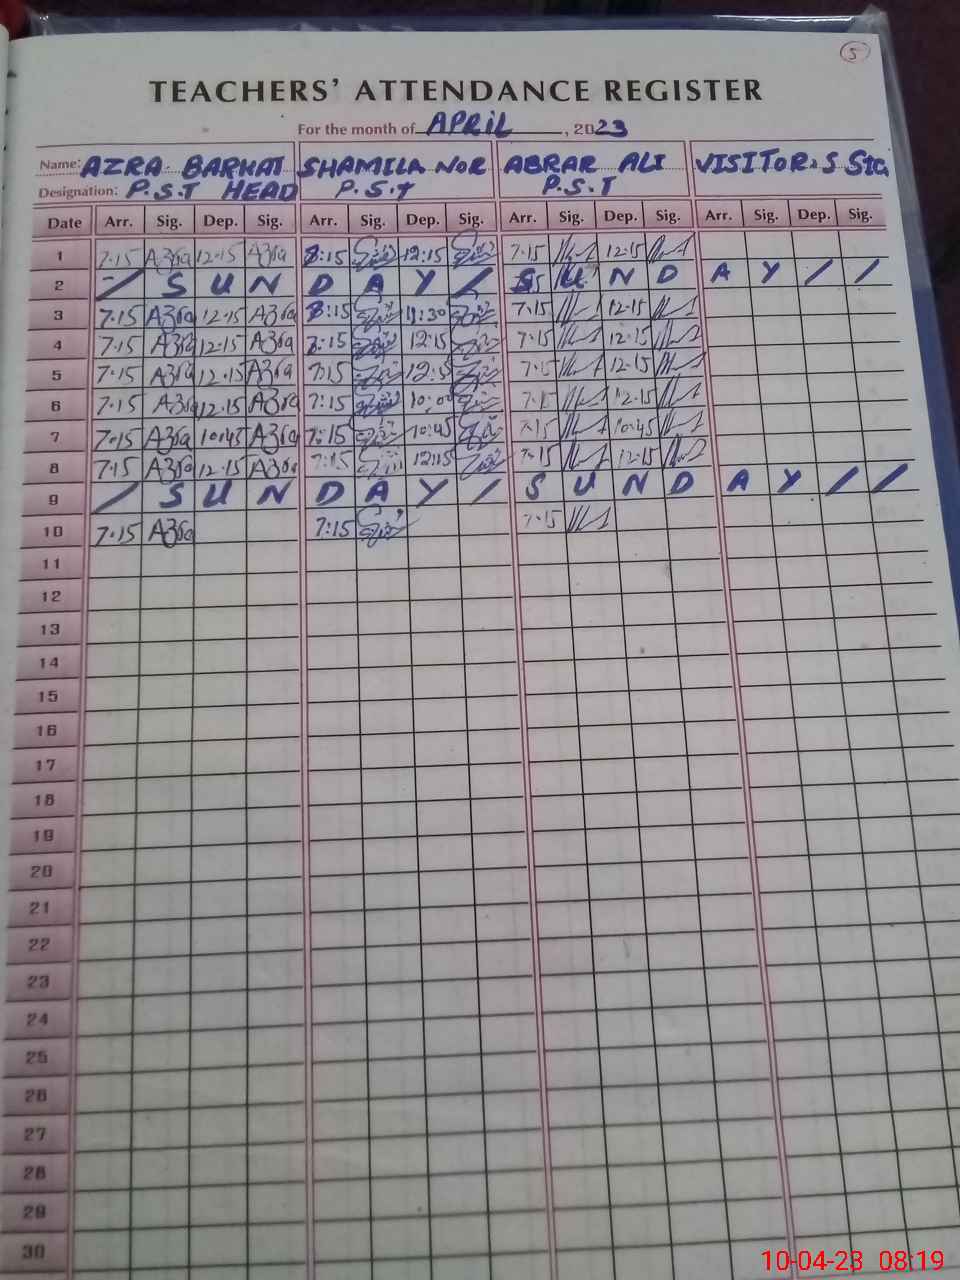 5
TEACHERS' ATTENDANCE REGISTER
For the month of APRIL, 2023
Name: AZRA BARKAT SHAMILA NOR ABRAR ALI VISITOR,S Sig
Designation: P.S.T HEAD P.S.T P.S.T
Date Arr. Sig. Dep. Sig. Arr. Sig. Dep. Sig. Arr. Sig. Dep. Sig. Arr. Sig. Dep. Sig.
1 7:15 Azra 12:15 Azra 8:15 12:15 7:15 12:15
2 / S U N D A Y / S U N D A Y / /
3 7:15 Azra 12:15 Azra 8:15 11:30 7:15 12:15
4 7:15 Azra 12:15 Azra :15 12:15 7:15 12:15
5 7:15 Azra 12:15 Azra 7:15 7:15 12:15
6 7:15 Azra 12:15 Azra 7:15 7:15 12:15
7 7:15 Azra 10:45 Azra 7:15 10:45 7:15 10:45
8 7:15 Azra 12:15 Azra 7:15 12:15 7:15 12:15
9 / S U N D A Y / S U N D A Y / /
10 7:15 Azra 7:15 7:15
11
12
13
14
15
16
17
18
19
20
21
22
23
24
25
26
27
28
29
30
10-04-23 08:19